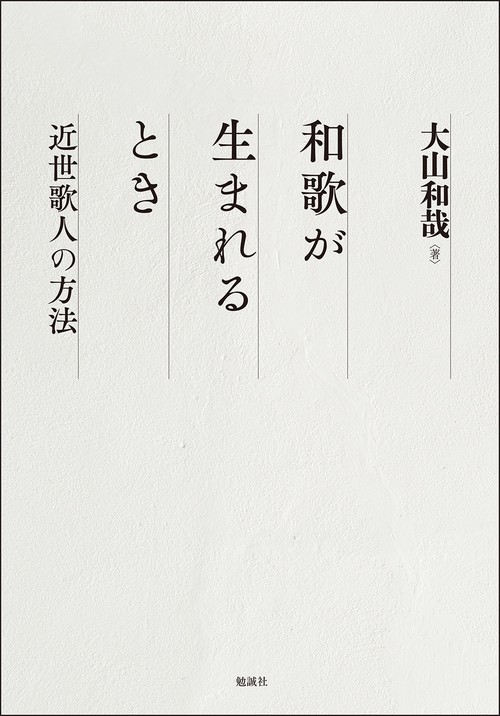 大山和哉〈著〉
和歌が
生まれる
とき
近世歌人の方法
勉誠社